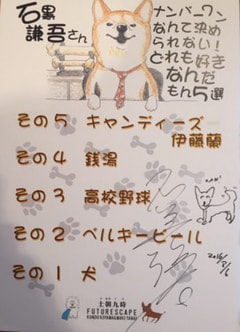 石黒
謙吾さん
ナンバーワン
なんて決め
られない!
どれも好き
なんだ
もん5選
その5 キャンディーズ
伊藤蘭
その4 銭湯
その3 高校野球
その2 ベルギービール
その1 犬
土曜九時
FUTURESCAPE